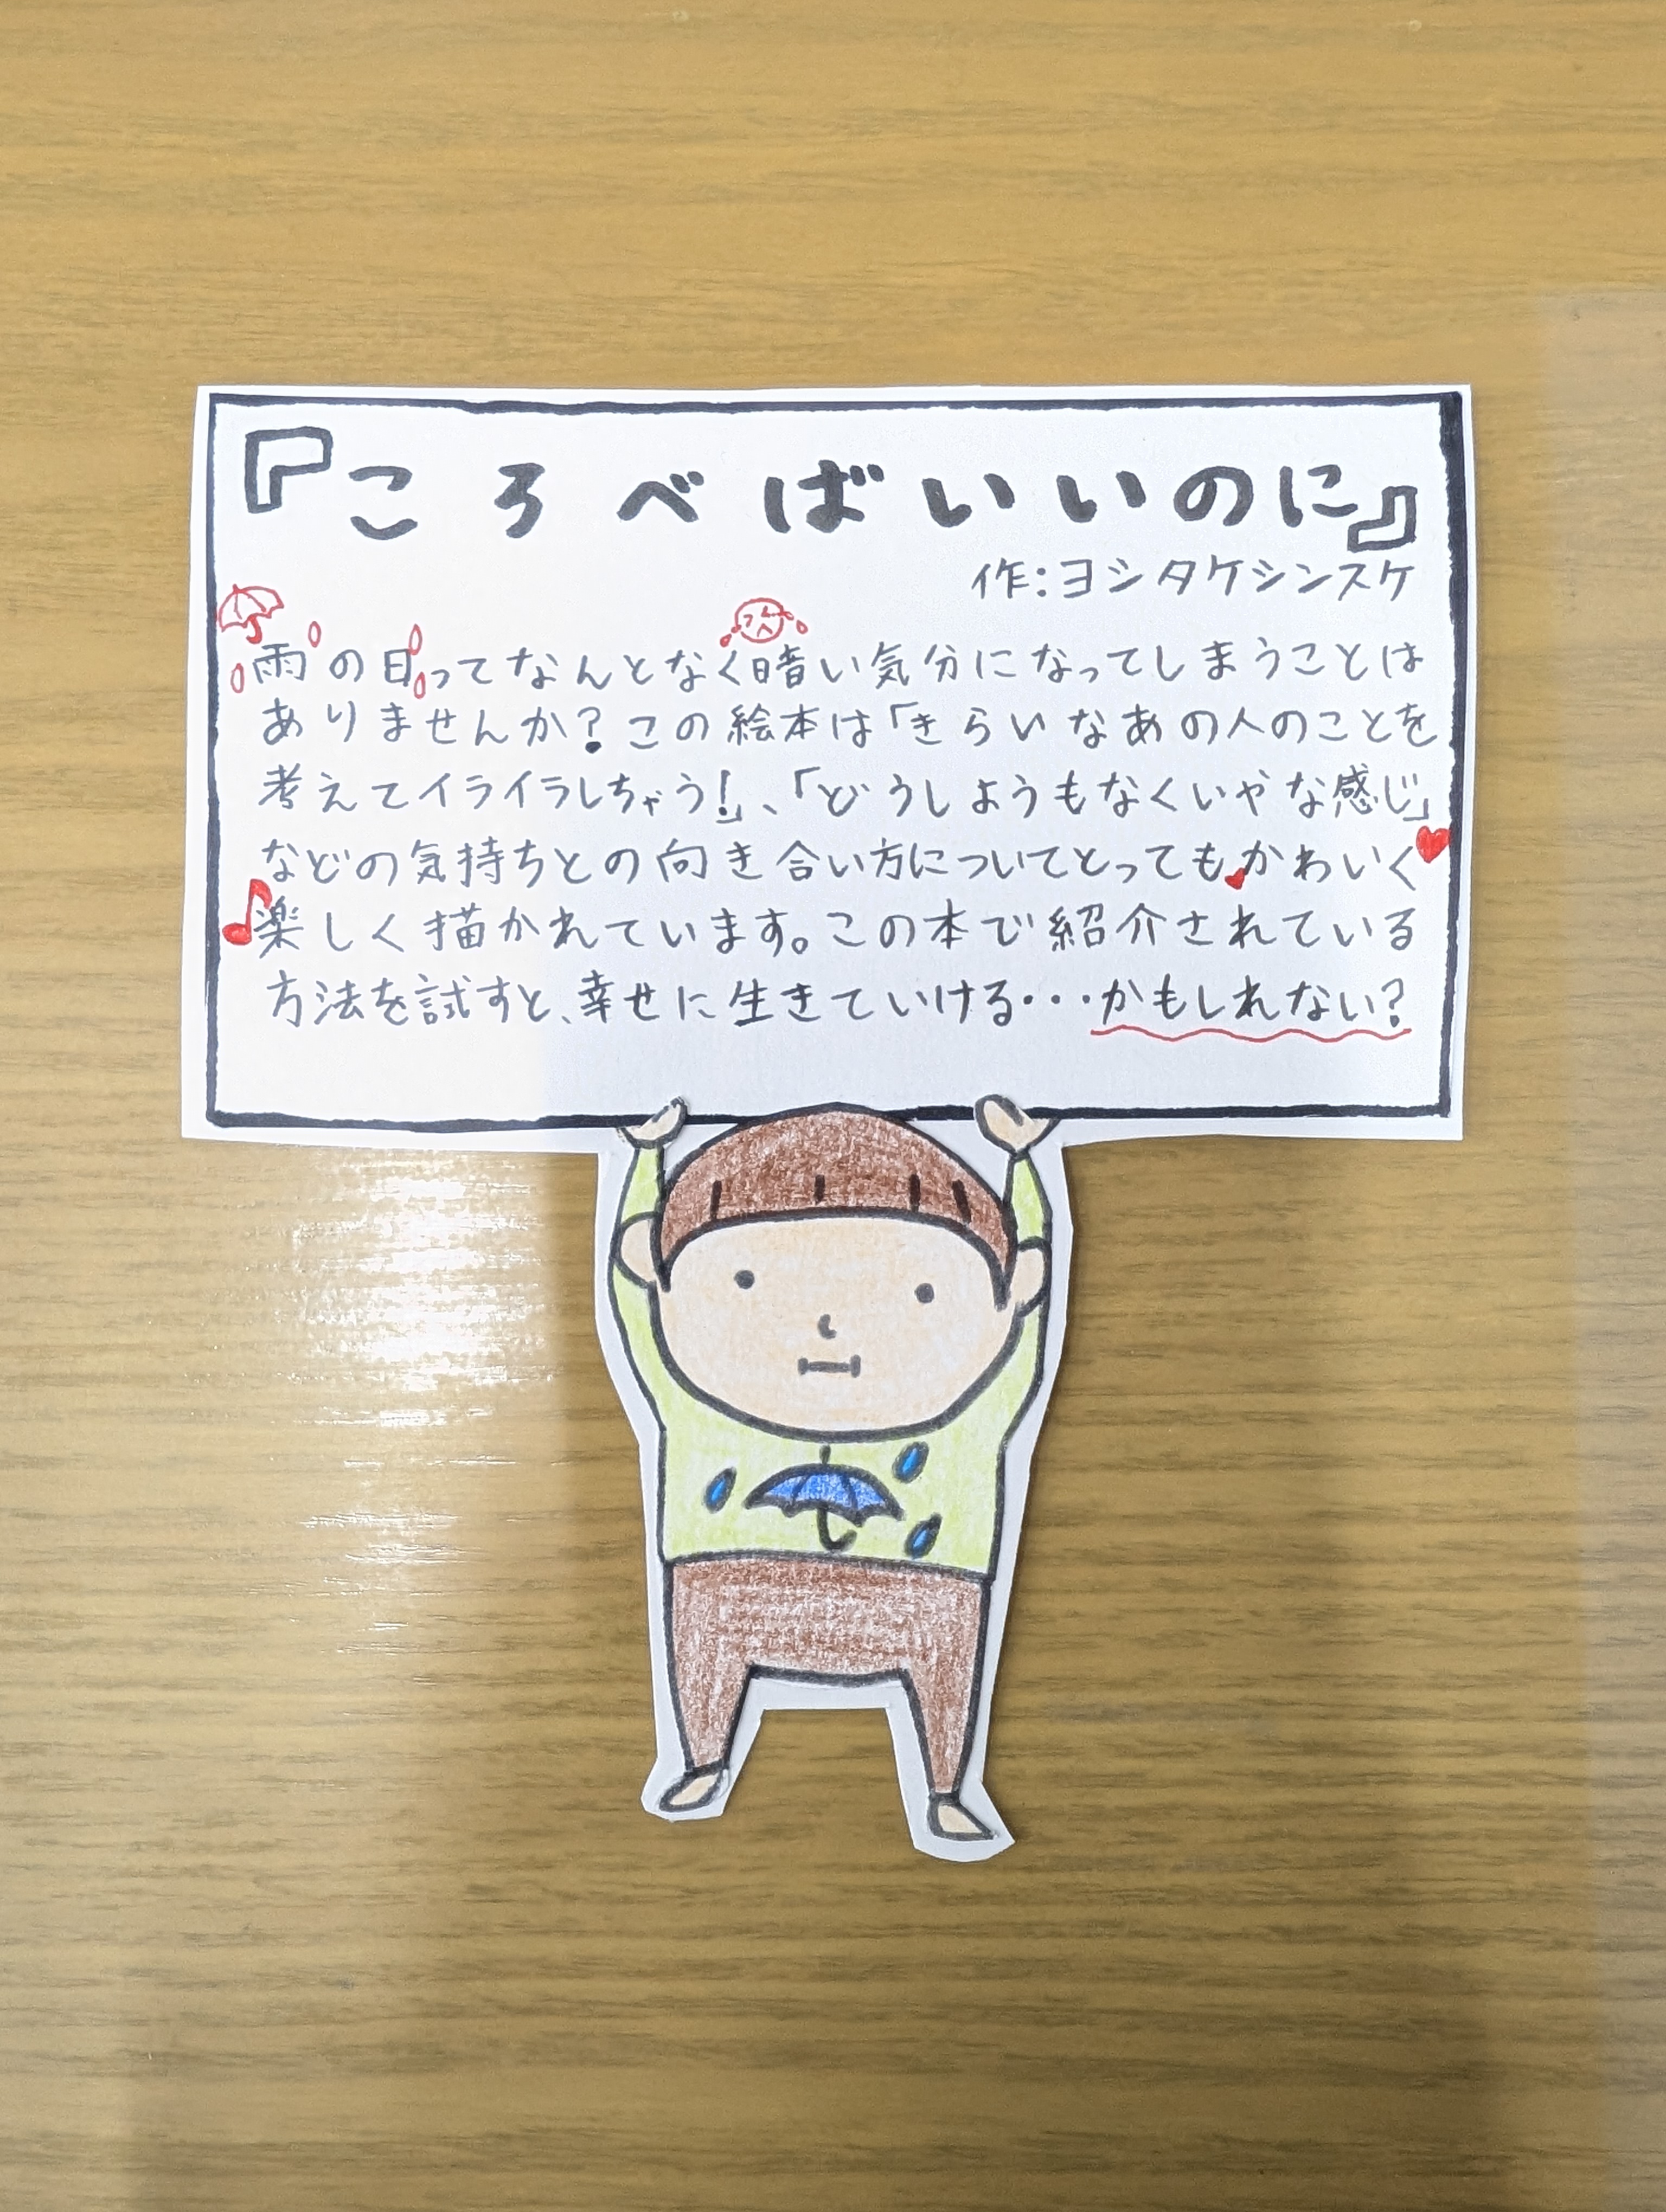 『ころべばいいのに』
作:ヨシタケシンスケ
雨の日ってなんとなく暗い気分になってしまうことは
ありませんか?この絵本は「きらいなあの人のことを
考えてイライラしちゃう!」、「どうしようもなくいやな感じ」
などの気持ちとの向き合い方についてとってもかわいく
楽しく描かれています。この本で紹介されている
方法を試すと、幸せに生きていける・・・かもしれない?